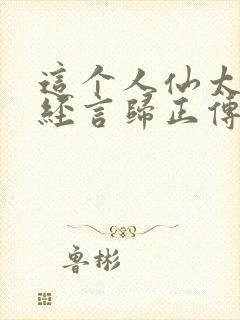 這个人仙太
經言歸正傳
魯彬